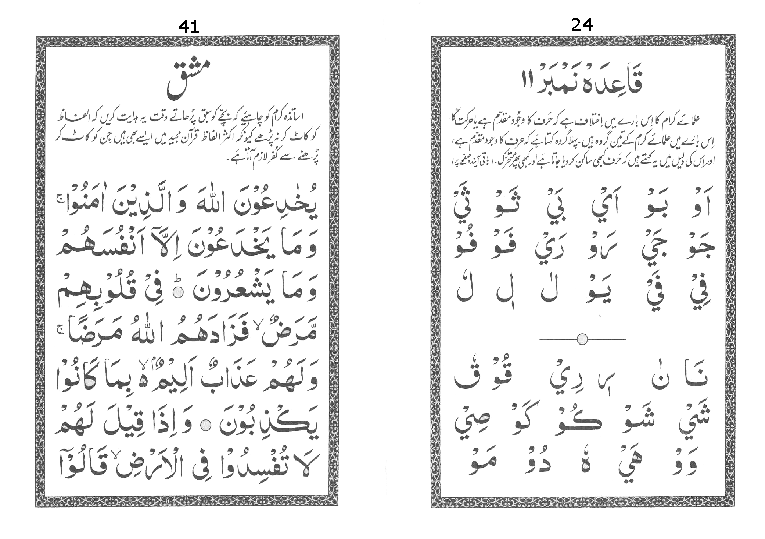 24
قَاعِدَہ نَمبَر ۱۱
علمائے کرام کا اس بارے میں اختلاف ہے کہ حرف کا وجود مقدم ہے یا حرکت کا
اس بارے میں علمائے کرام کے تین گروہ ہیں۔ پہلا گروہ کہتا ہے کہ حرف کا وجود مقدم ہے،
اور اس کی دلیل میں یہ کہتے ہیں کہ حرف کبھی ساکن کر دیا جاتا ہے اور کبھی پھر متحرک۔
اَوْ بَوْ اَيْ بَيْ ثَوْ ثَيْ
جَوْ جَيْ رَوْ رَيْ فَوْ فُوْ
فِيْ فَيْ يَوْ لَ لِ لُ
نَا نٰ رِ رِيْ قُوْ قُ
شَيْ شَوْ كُوْ كَوْ صِيْ
وَوْ هَيْ هُ دُوْ مَوْ
41
مشق
اساتذہ کرام کو چاہیئے کہ بچے کو سبق پڑھاتے وقت یہ ہدایت کریں کہ الفاظ
کو کاٹ کر نہ پڑھے کیونکہ اکثر الفاظ قرآن مجید میں ایسے بھی ہیں جن کو کاٹ کر
پڑھنے سے کفر لازم آتا ہے۔
يُخٰدِعُوْنَ اللّٰهَ وَ الَّذِيْنَ اٰمَنُوْاۚ
وَ مَا يَخْدَعُوْنَ اِلَّاۤ اَنْفُسَهُمْ
وَ مَا يَشْعُرُوْنَ ۞ؕ فِيْ قُلُوْبِهِمْ
مَّرَضٌۙ فَزَادَهُمُ اللّٰهُ مَرَضًاۚ
وَلَهُمْ عَذَابٌ اَلِيْمٌۢۙ بِمَا كَانُوْا
يَكْذِبُوْنَ ۞ وَ اِذَا قِيْلَ لَهُمْ
لَا تُفْسِدُوْا فِي الْاَرْضِۙ قَالُوْۤا